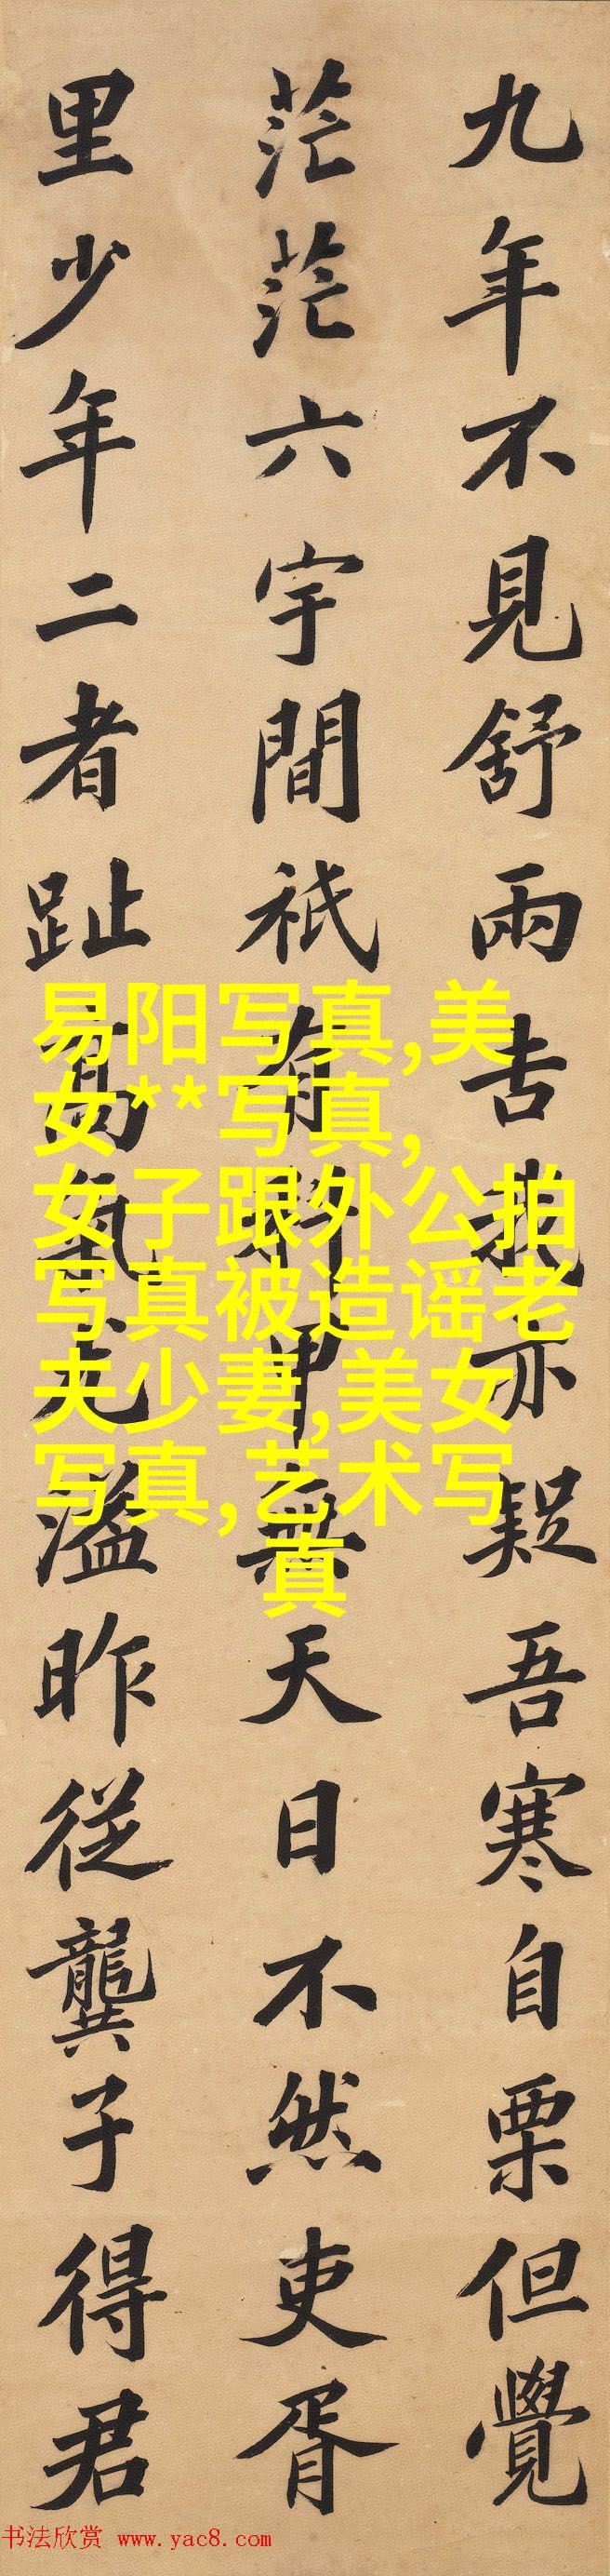 九年不見舒雨吉我亦疑吾寒自栗但覺
茫茫六宇間祇有科甲無天日不然吏胥
里少年二者趾高氣尤溢昨從龔子得君
易阳写真,美
女**写真,
女子跟外公拍
写真被造谣老
夫少妻,美女
写真,艺术写
真
书法欣赏 www.yac8.com